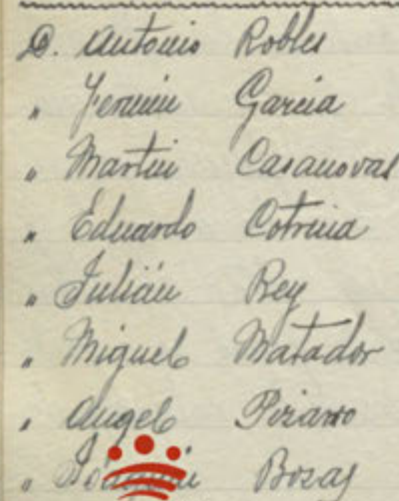 D. Antonio Robles
" Fermín García
" Martín Casanovas
" Eduardo Cotrina
" Julián Rey
" Miguel Matador
" Angel Pizarro
" Joaquín Bozas